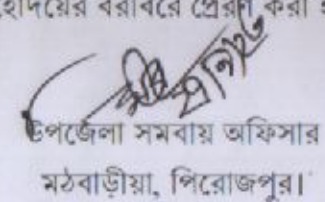 হোদয়ের বরাবরে প্রেরণ করা
উপজেলা সমবায় অফিসার
মঠবাড়ীয়া, পিরোজপুর।